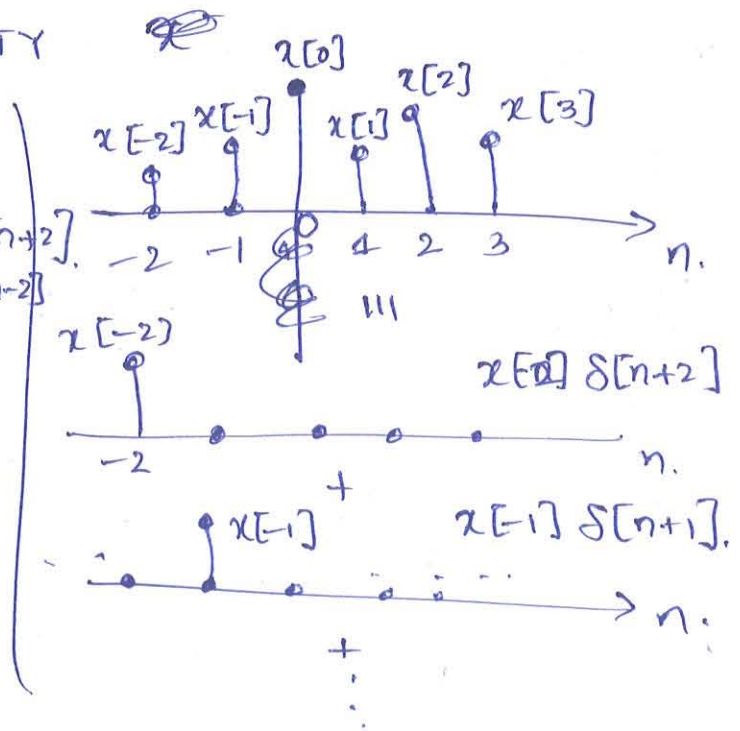 TY
x[0]
x[-2] x[-1] x[1] x[2] x[3]
n+2].
n-2]
-2 -1 0 1 2 3 n.
III
x[-2]
δ[n+2]
-2 n.
+
x[-1] x[-1] δ[n+1].
n.
+